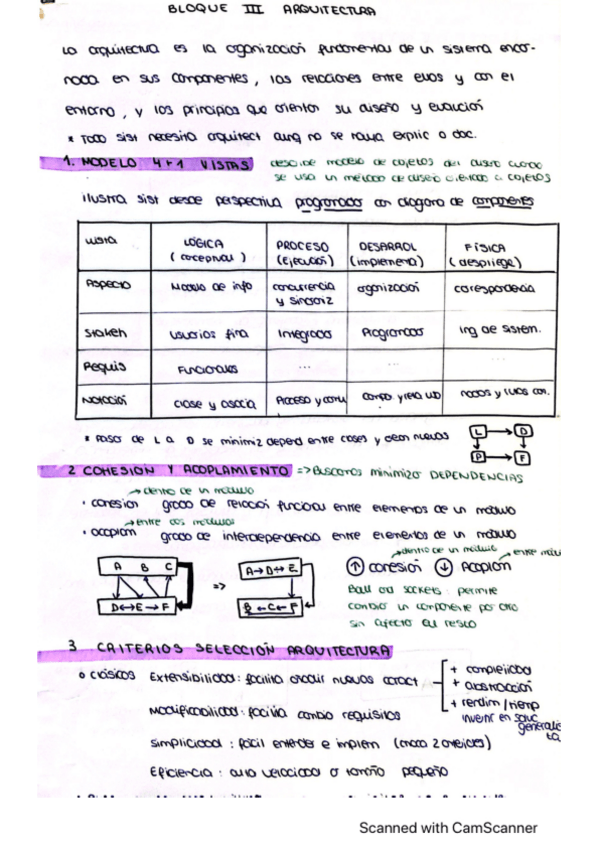 BLOQUE III ARQUITECTURA
La arquitectura es la organización fundamental de un sistema encar-
nada en sus componentes, las relaciones entre ellos y con el
entorno, y los principios que orientan su diseño y evolución
* Todo sist necesita arquitect aunq no se haya explic o doc.
1. MODELO 4+1 VISTAS describe modelo de objetos del diseño cuando
se usa un método de diseño orientado a objetos
ilustra sist desde perspectiva programador con diagrama de componentes
VISTA LÓGICA (conceptual) PROCESO (ejecución) DESARROL (implementa) FÍSICA (despliege)
Aspecto Modelo de info concurrencia y sincroniz organización correspondencia
Stakeh usuarios fina Integrador Programador ing de sistem.
Requis Funcionales ... ...
Notación clase y asocia Acceso y comu nodos y
* Pasar de L a D se minimiz depend entre clases y
L D
P F
2 COHESIÓN Y ACOPLAMIENTO => Buscamos minimizar DEPENDENCIAS
→ dentro de un módulo
· cohesion grado de relación funcional entre elementos de un módulo
→ entre dos módulos
· acoplam grado de interdependencia entre elementos de un módulo
→ dentro de un módulo → entre
A B C
D↔E→F
=>
A→D↔E
B←C←F
↑ cohesión ↓ Acoplam
Ball and sockets: permite
cambiar un componente por otro
sin afectar al resto
3 CRITERIOS SELECCIÓN ARQUITECTURA
o Clásicos Extensibilidad: facilita añadir nuevas caract
+ complejidad
+ abstracción
+ rendim/tiemp
invertir en soluc
generalis
ta
Modificabilidad: facilita cambio requisitos
Simplicidad: fácil entender e implem
Eficiencia: alta velocidad o tamaño pequeño
Scanned with CamScanner